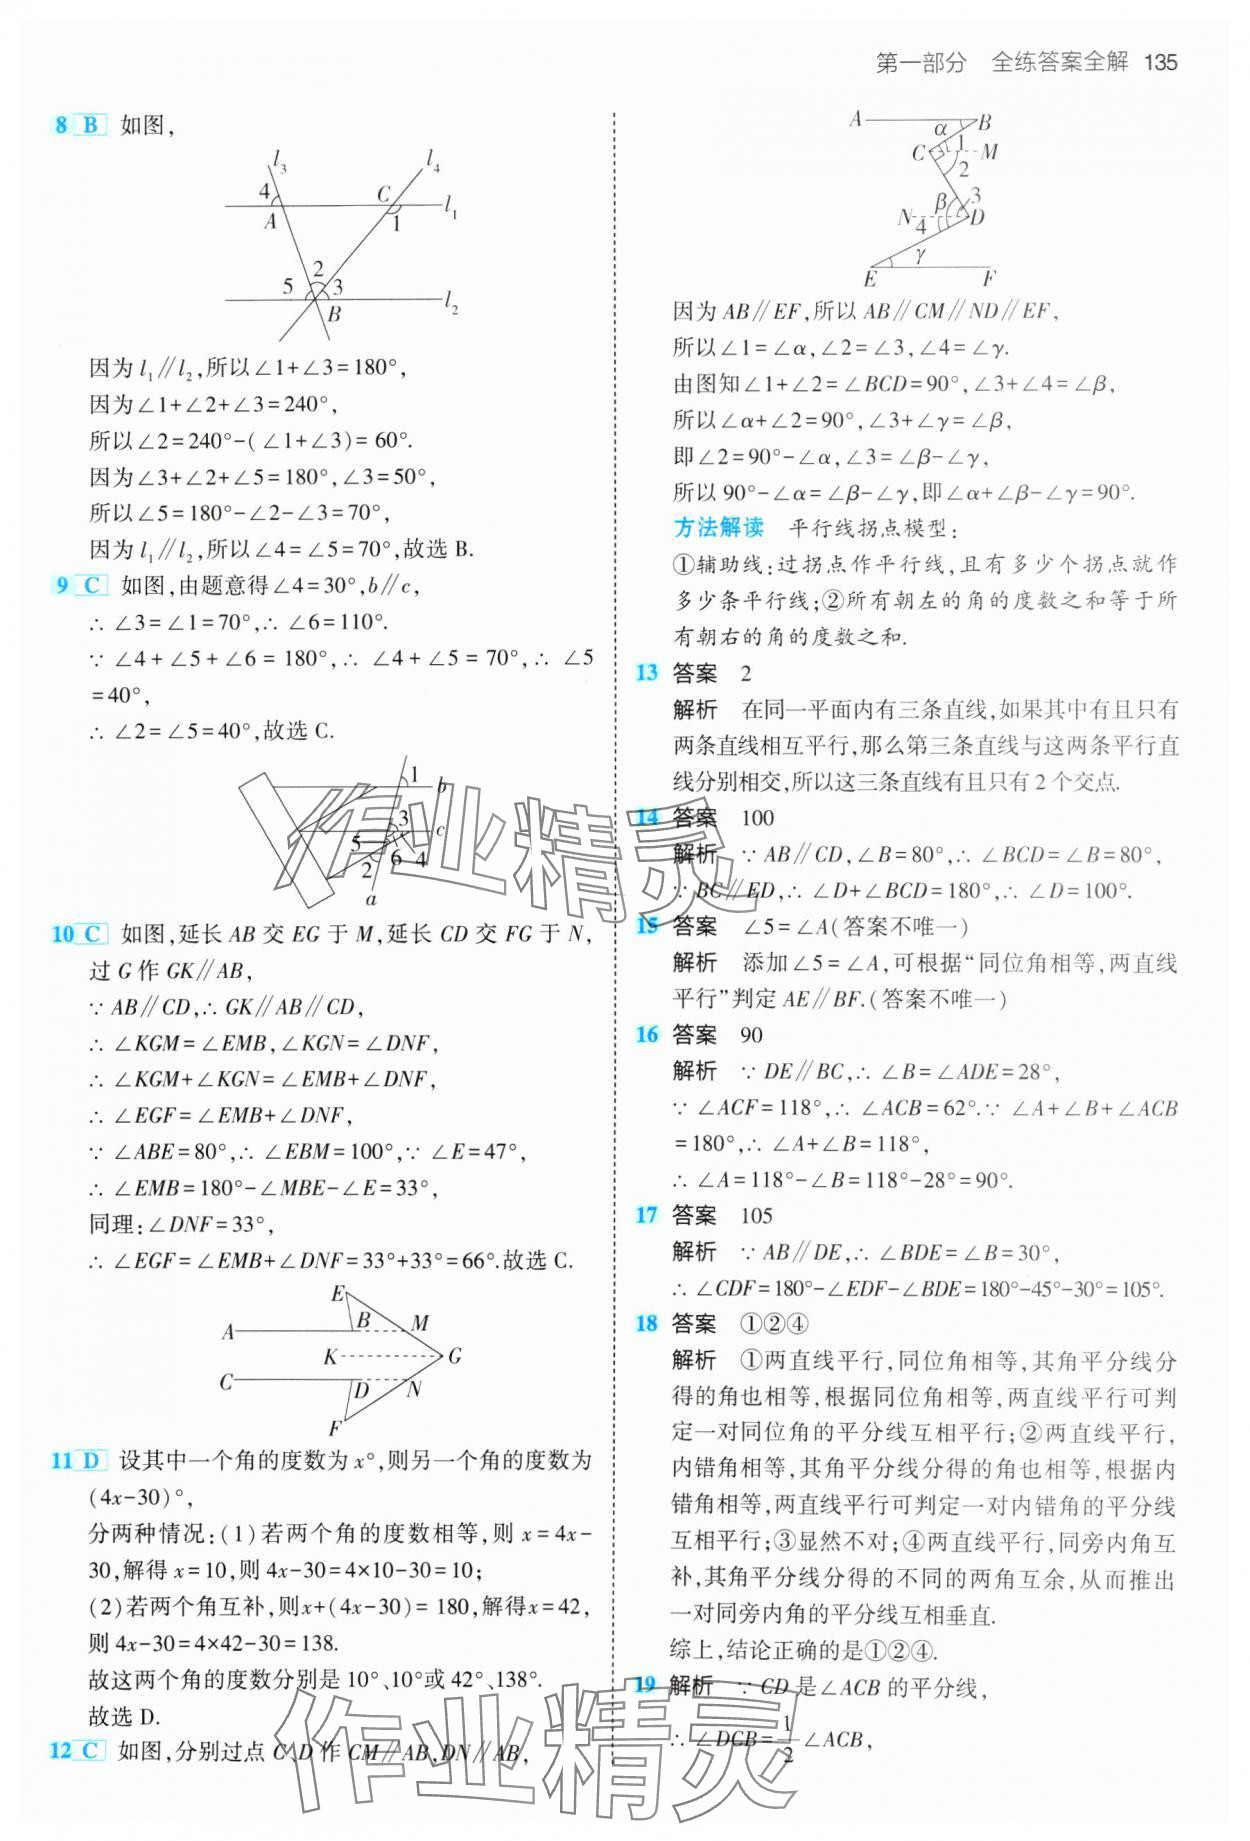 第一部分 全练答案全解 135
8 B 如图,
l₃
l₄
4
C
A
1
l₁
2
5
3
B
l₂
因为 l₁∥l₂,所以∠1+∠3=180°,
因为∠1+∠2+∠3=240°,
所以∠2=240°-(∠1+∠3)=60°.
因为∠3+∠2+∠5=180°,∠3=50°,
所以∠5=180°-∠2-∠3=70°,
因为 l₁∥l₂,所以∠4=∠5=70°,故选 B.
9 C 如图,由题意得∠4=30°,b∥c,
∴ ∠3=∠1=70°,∴ ∠6=110°.
∵ ∠4+∠5+∠6=180°,∴ ∠4+∠5=70°,∴ ∠5
=40°,
∴ ∠2=∠5=40°,故选 C.
1
b
3
c
5
6
4
2
a
10 C 如图,延长 AB 交 EG 于 M,延长 CD 交 FG 于 N,
过 G 作 GK∥AB,
∵ AB∥CD,∴ GK∥AB∥CD,
∴ ∠KGM=∠EMB,∠KGN=∠DNF,
∴ ∠KGM+∠KGN=∠EMB+∠DNF,
∴ ∠EGF=∠EMB+∠DNF,
∵ ∠ABE=80°,∴ ∠EBM=100°,∵ ∠E=47°,
∴ ∠EMB=180°-∠MBE-∠E=33°,
同理:∠DNF=33°,
∴ ∠EGF=∠EMB+∠DNF=33°+33°=66°.故选 C.
E
A
B
M
K
G
C
D
N
F
11 D 设其中一个角的度数为 x°,则另一个角的度数为
(4x-30)°,
分两种情况:(1)若两个角的度数相等,则 x=4x-
30,解得 x=10,则 4x-30=4×10-30=10;
(2)若两个角互补,则x+(4x-30)=180,解得x=42,
则 4x-30=4×42-30=138.
故这两个角的度数分别是 10°、10°或 42°、138°.
故选 D.
12 C 如图,分别过点 C、D 作 CM∥AB,DN∥AB,
A
α
B
C
1
M
2
β
3
N
D
4
γ
E
F
因为 AB∥EF,所以 AB∥CM∥ND∥EF,
所以∠1=∠α,∠2=∠3,∠4=∠γ.
由图知∠1+∠2=∠BCD=90°,∠3+∠4=∠β,
所以∠α+∠2=90°,∠3+∠γ=∠β,
即∠2=90°-∠α,∠3=∠β-∠γ,
所以 90°-∠α=∠β-∠γ,即∠α+∠β-∠γ=90°.
方法解读 平行线拐点模型:
①辅助线:过拐点作平行线,且有多少个拐点就作
多少条平行线;②所有朝左的角的度数之和等于所
有朝右的角的度数之和.
13 答案 2
解析 在同一平面内有三条直线,如果其中有且只有
两条直线相互平行,那么第三条直线与这两条平行直
线分别相交,所以这三条直线有且只有 2 个交点.
14 答案 100
解析 ∵ AB∥CD,∠B=80°,∴ ∠BCD=∠B=80°,
∵ BC∥ED,∴ ∠D+∠BCD=180°,∴ ∠D=100°.
15 答案 ∠5=∠A(答案不唯一)
解析 添加∠5=∠A,可根据“同位角相等,两直线
平行”判定 AE∥BF.(答案不唯一)
16 答案 90
解析 ∵ DE∥BC,∴ ∠B=∠ADE=28°,
∵ ∠ACF=118°,∴ ∠ACB=62°.∵ ∠A+∠B+∠ACB
=180°,∴ ∠A+∠B=118°,
∴ ∠A=118°-∠B=118°-28°=90°.
17 答案 105
解析 ∵ AB∥DE,∴ ∠BDE=∠B=30°,
∴ ∠CDF=180°-∠EDF-∠BDE=180°-45°-30°=105°.
18 答案 ①②④
解析 ①两直线平行,同位角相等,其角平分线分
得的角也相等,根据同位角相等,两直线平行可判
定一对同位角的平分线互相平行;②两直线平行,
内错角相等,其角平分线分得的角也相等,根据内
错角相等,两直线平行可判定一对内错角的平分线
互相平行;③显然不对;④两直线平行,同旁内角互
补,其角平分线分得的不同的两角互余,从而推出
一对同旁内角的平分线互相垂直.
综上,结论正确的是①②④.
19 解析 ∵ CD 是∠ACB 的平分线,
∴ ∠DCB=1/2∠ACB,
作业精灵
作业精灵